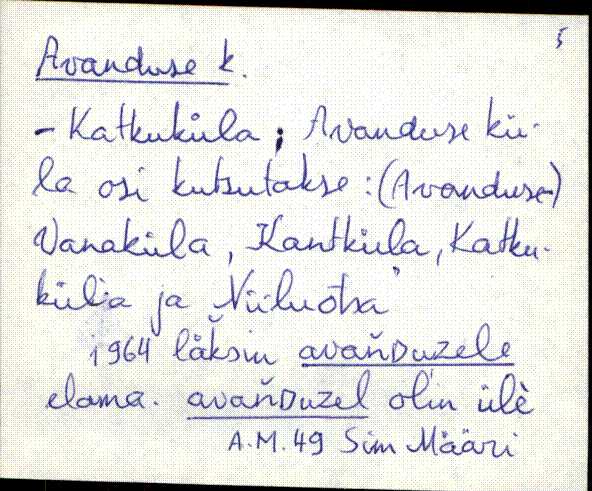 5
Avanduse k.
- Katkuküla; Avanduse kü-
la osi kutsutakse: (Avanduse-)
Vanaküla, Kantküla, Katku-
külla ja "Viiluotsa"
1964 läksin avaňDuzele
elama. avaňDuzel olin ülè
A.M. 49 Sim Määri